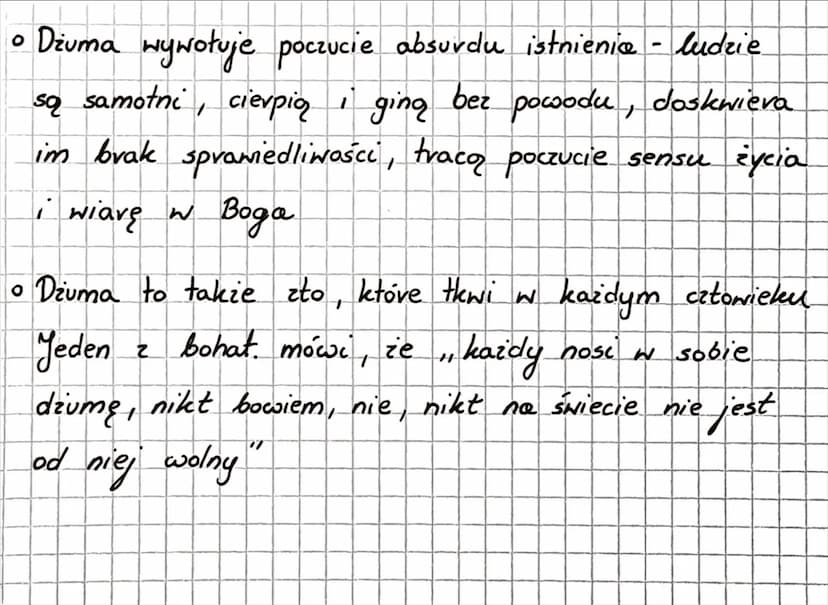 o Dżuma wywołuje poczucie absurdu istnienia - ludzie
są samotni, cierpią i giną bez powodu, doskwiera
im brak sprawiedliwości, tracą poczucie sensu życia
i wiarę w Boga
o Dżuma to także zło, które tkwi w każdym człowieku
Jeden z bohat. mówi, że „każdy nosi w sobie
dżumę, nikt bowiem, nie, nikt na świecie nie jest
od niej wolny"